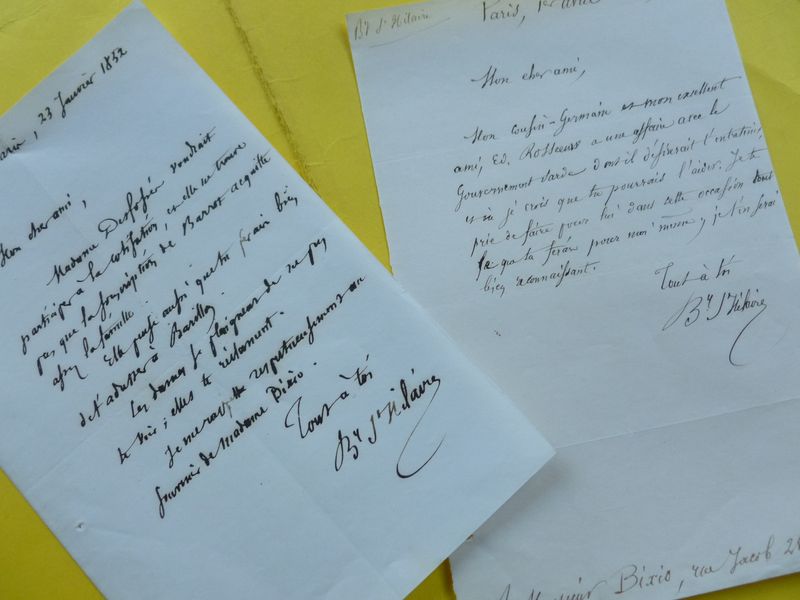 Paris, 23 Janvier 1852
Mon cher ami,
Madame Desfossés voudrait
participer à la cotisation, et elle ne trouve
pas que la souscription de Barrot acquitte
assez la famille.
Elle pense aussi que tu ferais bien
de t'adresser à Barillon.
Ces dames se plaignent de ne pas
te voir ; elles te réclament.
respectueusement au
souvenir de Madame Bixio.
Tout à toi
By St Hilaire
By St Hilaire
Paris, 1er avril
Mon cher ami,
Mon Cousin-Germain et mon excellent
ami, Ed. Rousseau a une affaire avec le
Gouvernement Sarde dont il désirerait t'entretenir,
et où je crois que tu pourrais l'aider. Je te
prie de faire pour lui dans cette occasion tout
ce que tu ferais pour moi même ; je t'en serai
bien reconnaissant.
Tout à toi
By St Hilaire
A Monsieur Bixio, rue Jacob 26